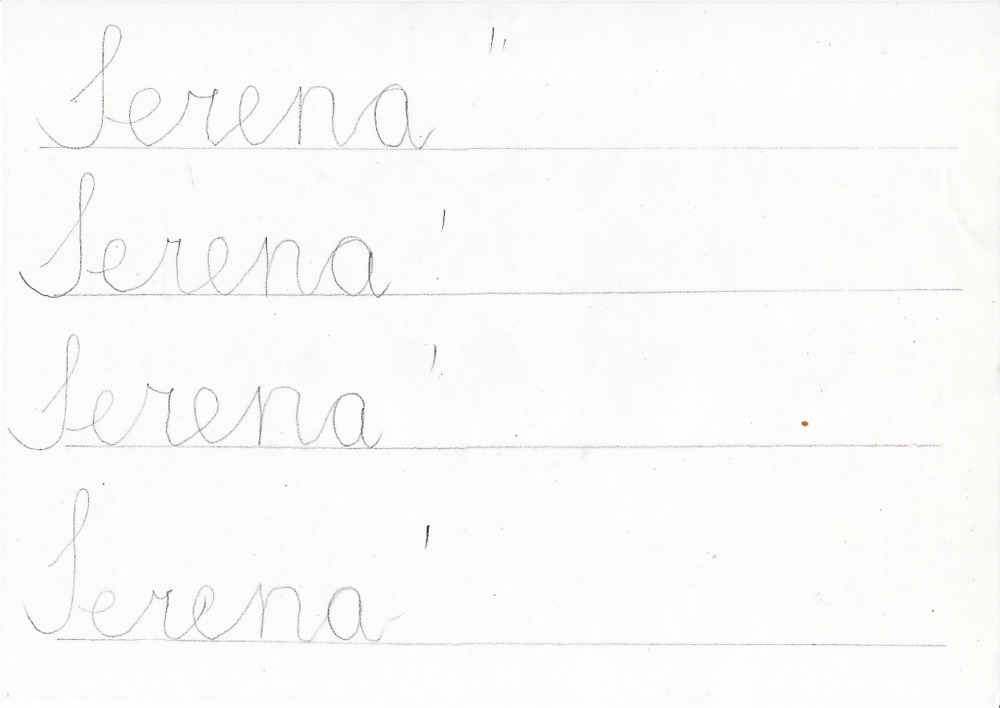 Serena "
Serena '
Serena '
Serena '